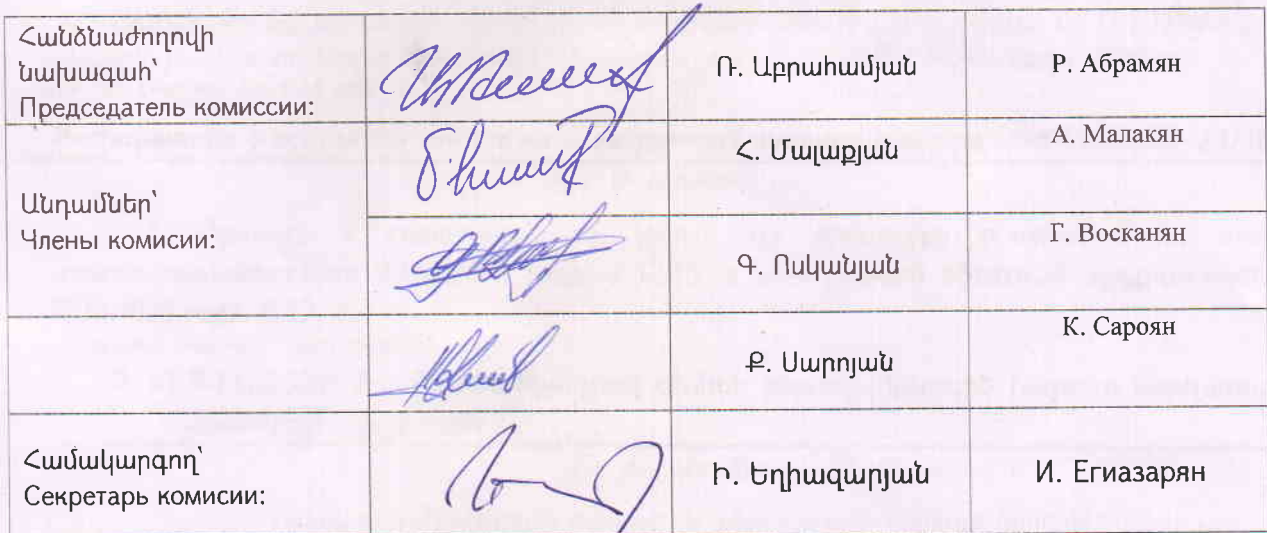 Հանձնաժողովի
նախագահ՝
Председатель комиссии:
Ռ. Աբրահամյան
Р. Абрамян
Հ. Մալաքյան
А. Малакян
Անդամներ՝
Члены комисии:
Գ. Ոսկանյան
Г. Восканян
Ք. Սարոյան
К. Сароян
Համակարգող՝
Секретарь комисии:
Ի. Եղիազարյան
И. Егиазарян